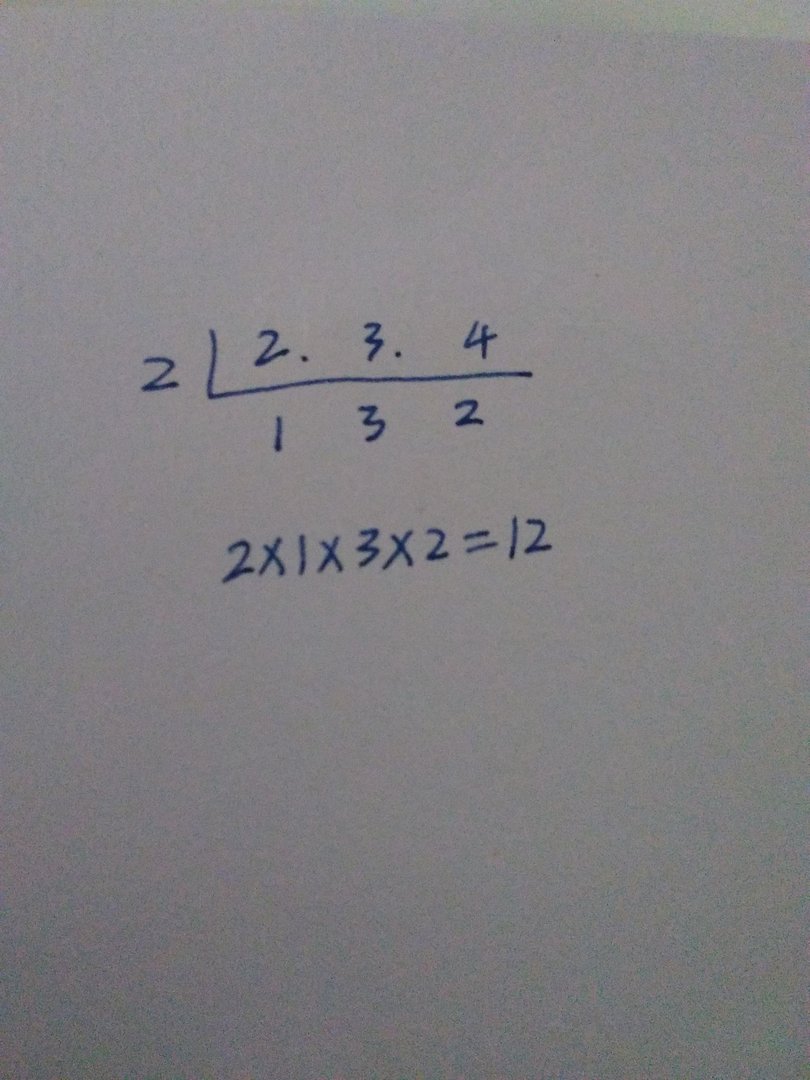 2 2. 3. 4
1 3 2
2×1×3×2=12